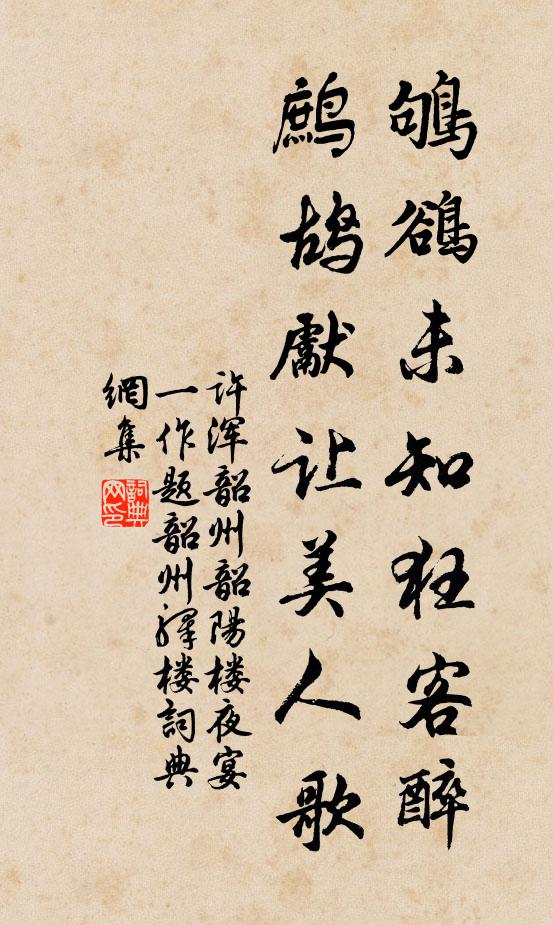 鴝鵒未知狂客醉
鷓鴣獻让美人歌
许浑韶州韶陽楼夜宴
一作题韶州驛楼詞典
網集
詞典
网印